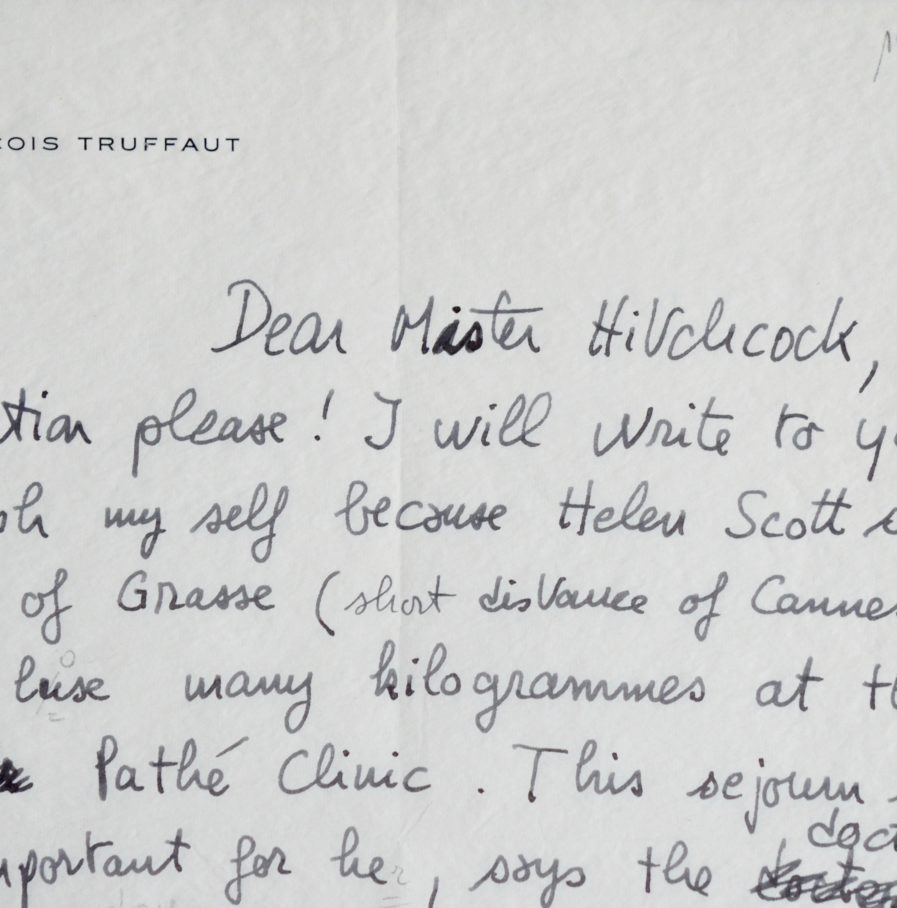 COIS TRUFFAUT
Dear Mister Hitchcock,
tion please! I will write to y
sh my self because Helen Scott
of Grasse (short distance of Cannes
luse many kilogrammes at th
Pathé Clinic. This sejourn
doct
mportant for her, says the